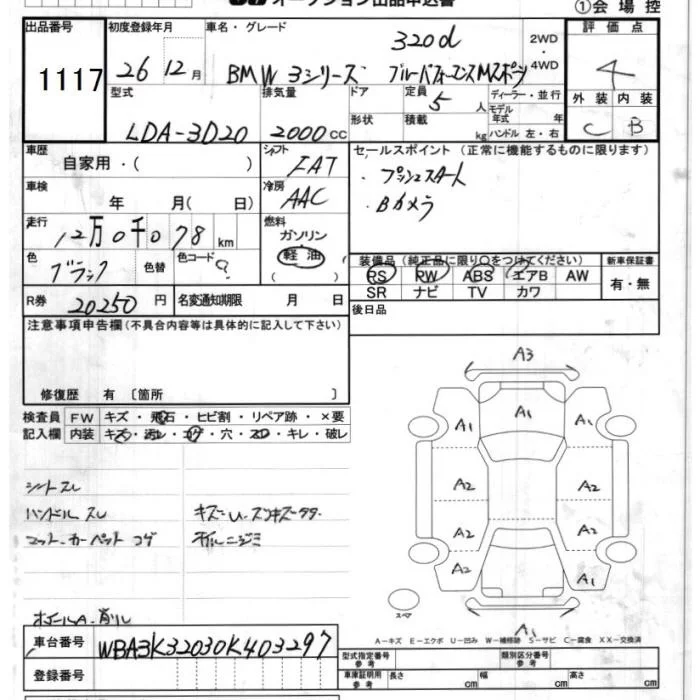 オークション出品申込書
①会場控
出品番号 初度登録年月 車名・グレード 320d 2WD・4WD 評価点
1117 26 12月 BMW 3シリーズ ブルーパフォーマンスMスポーツ 4
型式 排気量 ドア 定員 5人 ディーラー・並行 外装 内装
LDA-3D20 2000cc 形状 積載 kg モデル年式 年 ハンドル 左・右 C B
車歴 シフト FAT セールスポイント(正常に機能するものに限ります)
自家用・( )
車検 年 月( 日) 冷房 AAC ・プッシュスタート
・Bカメラ
走行 12万0千078km 燃料 ガソリン 軽油 ( )
色 ブラック 色替 色コード 装備品(純正品に限り○をつけてください) 新車保証書
PS PW ABS エアB AW 有・無
SR ナビ TV カワ
R券 20250円 名変通知期限 月 日 後日品
注意事項申告欄(不具合内容等は具体的に記入して下さい)
修復歴 有〔箇所 〕
検査員 FW キズ・飛石・ヒビ割・リペア跡・×要
記入欄 内装 キズ・汚レ・コゲ・穴・スレ・キレ・破レ
シートスレ
ハンドルスレ キズーU.スンキズータタ
マット.カーペットコゲ
ホイールA.削リ
A3
A1 A1 A1
A2 A2
A2 A2
A2 A1
スペア
A1
A-キズ E-エクボ U-凹み W-補修跡 S-サビ C-腐食 XX-交換済
車台番号 WBA3K32030K403297
登録番号
型式指定番号 参考 類別区分番号 参考
車庫証明用 参考 長さ cm 幅 cm 高さ cm